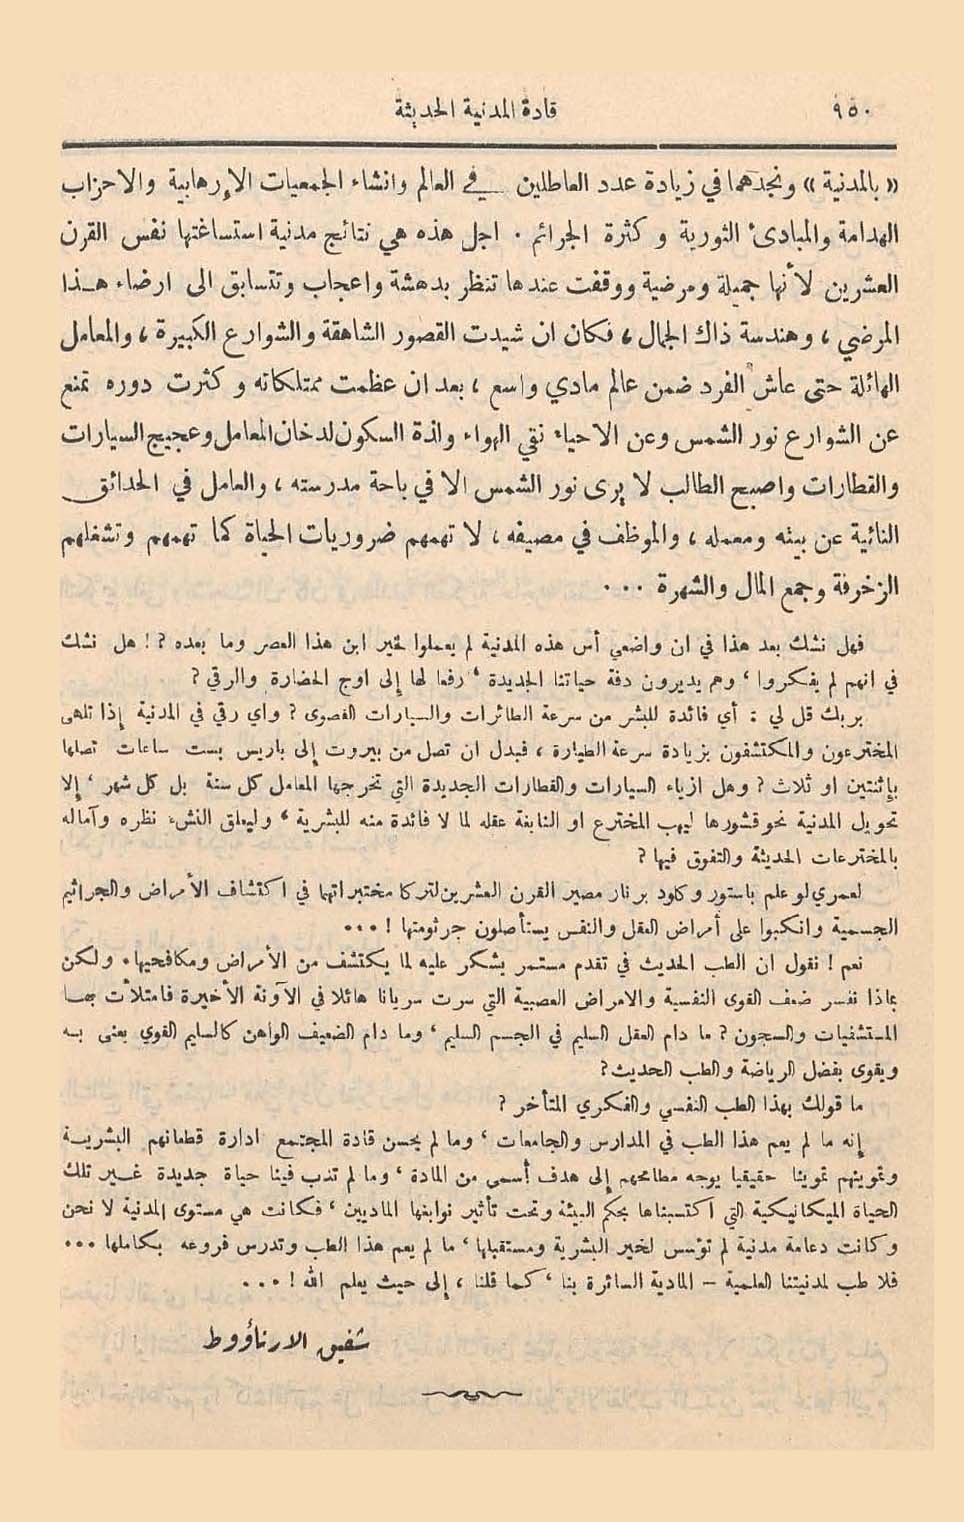 ٩٥٠
قادة المدنية الحديثة
« بالمدنية » ونجدهما في زيادة عدد العاطلين في العالم وانشاء الجمعيات الإرهابية والاحزاب
الهدامة والمبادئ الثورية و كثرة الجرائم . اجل هذه هي نتائج مدنية استساغتها نفس القرن
العشرين لأنها جميلة ومرضية ووقفت عندها تنظر بدهشة واعجاب وتتسابق الى ارضاء هـذا
المرضي ، وهندسة ذاك الجمال ، فكان ان شيدت القصور الشاهقة والشوارع الكبيرة ، والمعامل
الهائلة حتى عاش الفرد ضمن عالم مادي واسع ، بعد ان عظمت ممتلكاته و كثرت دوره تمنع
عن الشوارع نور الشمس وعن الاحياء نقي الهواء ولذة السكون لدخان المعامل وعجيج السيارات
والقطارات واصبح الطالب لا يرى نور الشمس الا في باحة مدرسته ، والعامل في الحدائق
النائية عن بيته ومعمله ، والموظف في مصيفه ، لا تهمهم ضروريات الحياة كما تهمهم وتشغلهم
الزخرفة وجمع المال والشهرة ...
فهل نشك بعد هذا في ان واضعي أس هذه المدنية لم يعملوا لخير ابن هذا العصر وما بعده ؟ ! هل نشك
في انهم لم يفكروا ، وهم يديرون دفة حياتنا الجديدة ، رفعا لها إلى اوج الحضارة والرقي ؟
بربك قل لي : أي فائدة للبشر من سرعة الطائرات والسيارات القصوى ؟ واي رقي في المدنية إذا تلهى
المخترعون والمكتشفون بزيادة سرعة الطيارة ، فبدل ان تصل من بيروت إلى باريس بست ساعات تصلها
بإثنتين او ثلاث ؟ وهل ازياء السيارات والقطارات الجديدة التي تخرجها المعامل كل سنة بل كل شهر ، إلا
تحويل المدنية نحو قشورها ليهب المخترع او النابغة عقله لما لا فائدة منه للبشرية ، وليعلق النشء نظره وآماله
بالمخترعات الحديثة والتفوق فيها ؟
لعمري لو علم باستور وكلود برنار مصير القرن العشرين لتركا مختبراتهما في اكتشاف الأمراض والجراثيم
الجسمية وانكبوا على أمراض العقل والنفس يستأصلون جرثومتها ! ...
نعم ! نقول ان الطب الحديث في تقدم مستمر يشكر عليه لما يكتشف من الأمراض ومكافحيها . ولكن
بماذا نفسر ضعف القوى النفسية والامراض العصبية التي سرت سريانا هائلا في الآونة الأخيرة فامتلأت بهـا
المستشفيات والسجون ؟ ما دام العقل السليم في الجسم السليم ، وما دام الضعيف الواهن كالسليم القوي يعنى بـه
ويقوى بفضل الرياضة والطب الحديث ؟
ما قولك بهذا الطب النفسي والفكري المتأخر ؟
إنه ما لم يعم هذا الطب في المدارس والجامعات ، وما لم يحسن قادة المجتمع ادارة قطعانهم البشريـة
وتموينهم تموينا حقيقيا يوجه مطامحهم إلى هدف أسمى من المادة ، وما لم تدب فينا حياة جديدة غـير تلك
الحياة الميكانيكية التي اكتسبناها بحكم البيئة وتحت تأثير نوابغها الماديين ، فكانت هي مستوى المدنية لا نحن
وكانت دعامة مدنية لم تؤسس لخير البشرية ومستقبلها ، ما لم يعم هذا الطب وتدرس فروعه بكاملها ...
فلا طب لمدنيتنا العلمية – المادية السائرة بنا ، كما قلنا ، إلى حيث يعلم الله ! ...
شفيق الارناؤوط